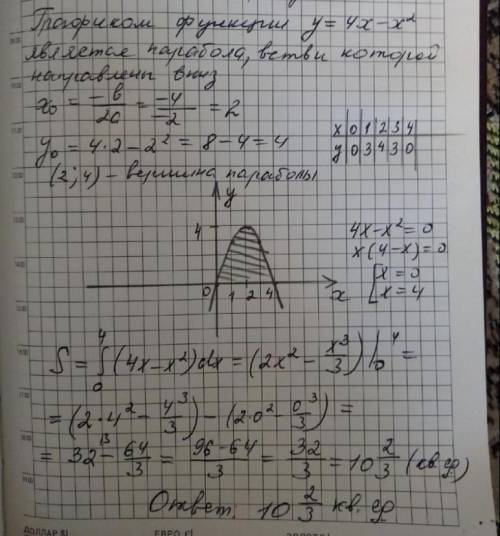 Графиком функции y = 4x - x²
является парабола, ветви которой
направлены вниз
x₀ = -b/2a = -4/-2 = 2
y₀ = 4·2 - 2² = 8 - 4 = 4
x | 0 | 1 | 2 | 3 | 4
y | 0 | 3 | 4 | 3 | 0
(2; 4) - вершина параболы
y
4
0 1 2 4 x
4x - x² = 0
x(4 - x) = 0
[x = 0
x = 4
S = ∫₀⁴ (4x - x²)dx = (2x² - x³/3)|₀⁴ =
= (2·4² - 4³/3) - (2·0² - 0³/3) =
= 32 \³ - 64/3 = 96-64/3 = 32/3 = 10 2/3 (кв. ед)
Ответ: 10 2/3 кв. ед
ДОЛЛАР $)
ЕВРО €)